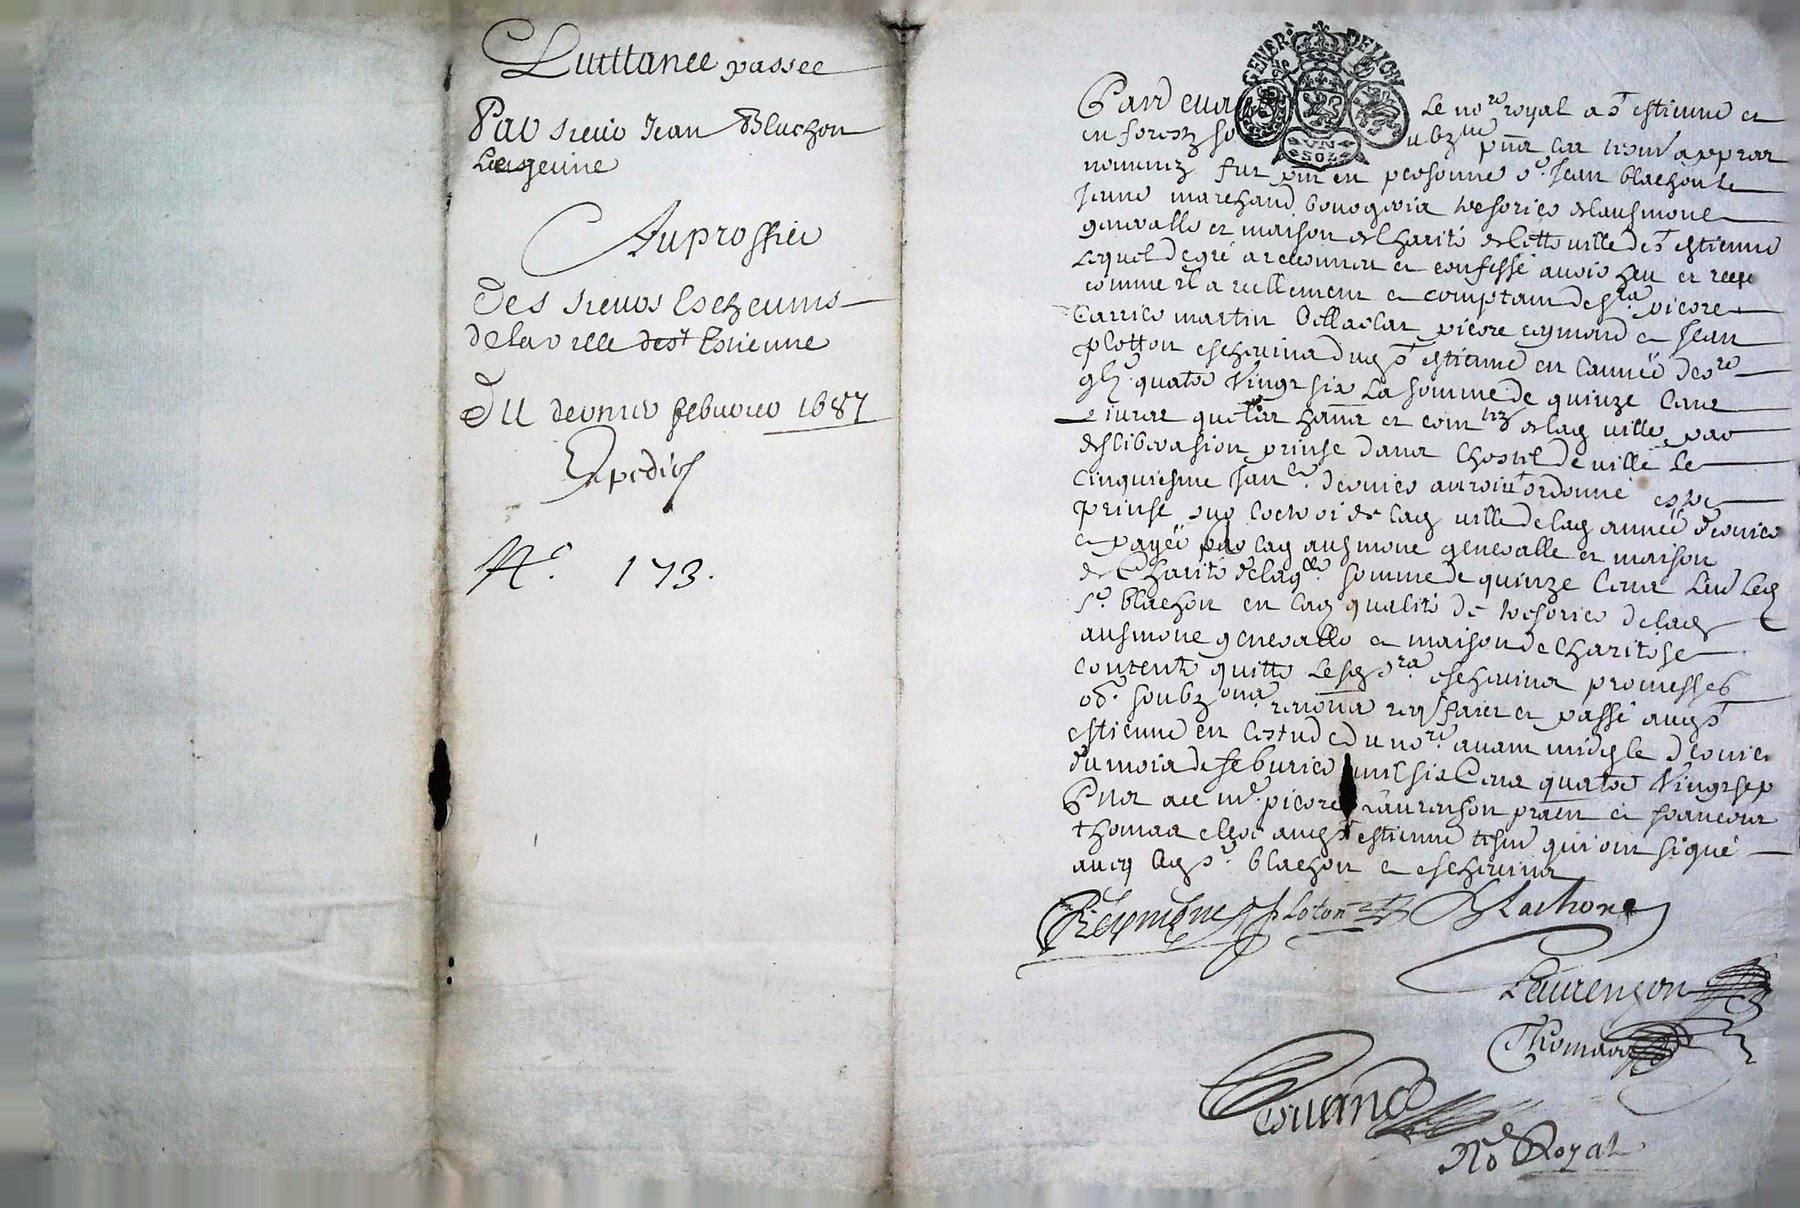 Quittance passee
Par sieur Jean Blachon
Le jeune
Au proffict
des sieurs Eschevins
de la ville de st Estienne
Du dernier febvrier 1687
Expedié
N.° 173.
GENER. DE LION
UN SOL
Pardeva le no.re royal a st estienne et
en forestz so ubz.né pnt les tesm appres
nommez fut pnt en personne sr. Jean blachon le
Jeune marchand bourgeois tresorier de lausmone
generalle et maison de Charité de lette ville de st estienne
Lequel de gré a recounnu et confessé avoir heu et receu
comme il a reellement et comptant de srs pierre
Carrier martin pierre reymond et Jean
plotton eschevins dud st estienne en lannée derre
gbz quatre vingt six La somme de quinze Cens
Livres que les habans et com.té de lad ville par
desliberasion prinse dans Lhostel de ville Le
Cinquiesme Jan.er dernier auroint ordonné estre
prinse sur Loctroi de lad ville de lad année derniere
et payée par lad ausmone generalle et maison
de Charité de laq.lle somme de quinze Cens Led
sr. blachon en lad qualité de tresorier de lad
ausmone generalle et maison de Charité se
contente quitte Lesd srs eschevins promesses
ob. soubz ons renons reqs faict et passé aud st
estienne en lestude du no.re avant midy le dernier
du mois de feburier mil six Cens quatre Vingt sept
Pns me. pierre Laurenson praen et francois
thomas clerc aud st estienne tesm qui ont signé
avecq led sr. blachon et eschevins
Reymond Ploton Blachon
Laurenson
Thomas
No Royal